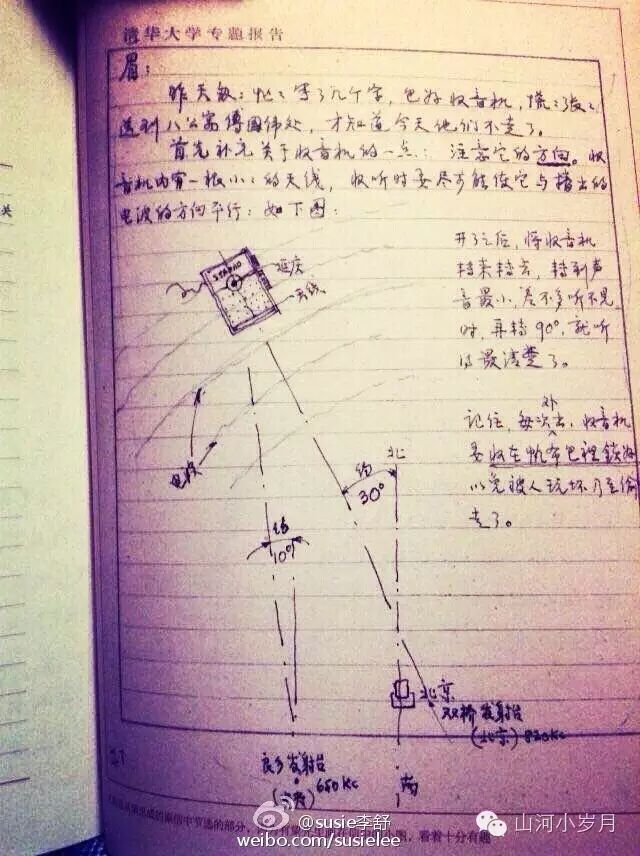 清华大学专题报告
眉：
昨天敏：忙：写了几个字，包好收音机，慌：张：
送到八公寓傅国伟处，才知道今天他们不走了。
首先补充关于收音机的一点：注意它的方向。收
音机内有一根小：的天线，收听时要尽可能使它与播出的
电波的方向平行：如下图：
延庆
天线
开了之后，将收音机
转来转去，转到声
音最小，差不多听不见
时，再转90°，就听
得最清楚了。
记住，每次外出，收音机
要收在帆布包裡鎖好
以免被人玩坏乃至偷
走了。
电波
北
约
30°
约
10°
北京
双桥发射台
(北京) 820Kc
良乡发射台
650Kc
南
@susie李舒
weibo.com/susielee
山河小岁月
看着十分有趣